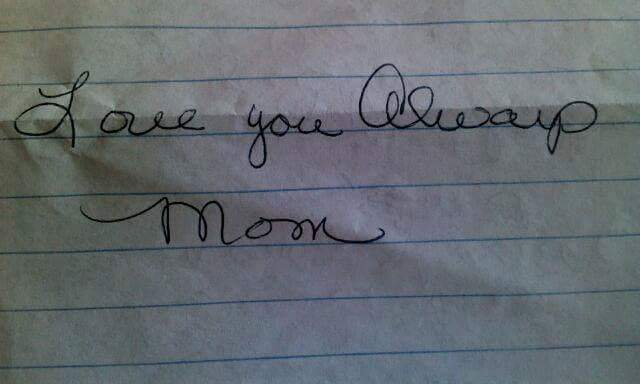 Love you Always
Mom